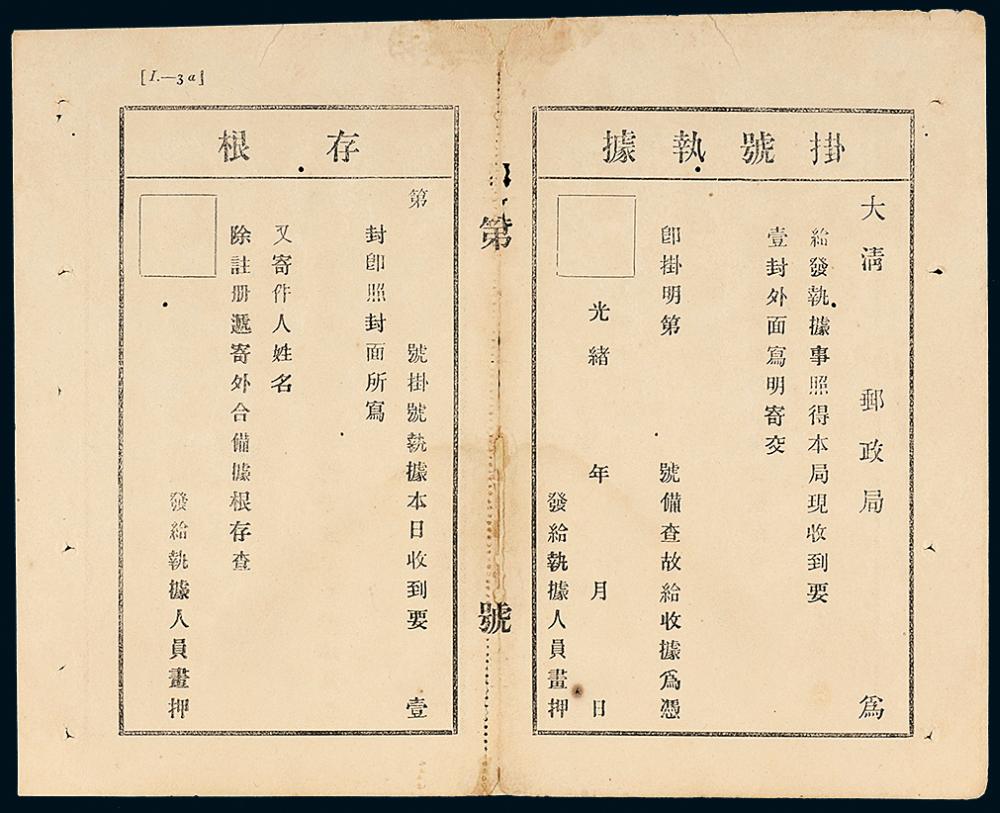 [I.—3a]
掛號執據
大淸 郵政局 爲
給發執據事照得本局現收到要
壹封外面寫明寄交
卽掛明第 號備查故給收據爲憑
光緒 年 月 日
發給執據人員畫押
第 號
存根
第 號掛號執據本日收到要 壹
封卽照封面所寫
又寄件人姓名
除註册遞寄外合備據根存查
發給執據人員畫押